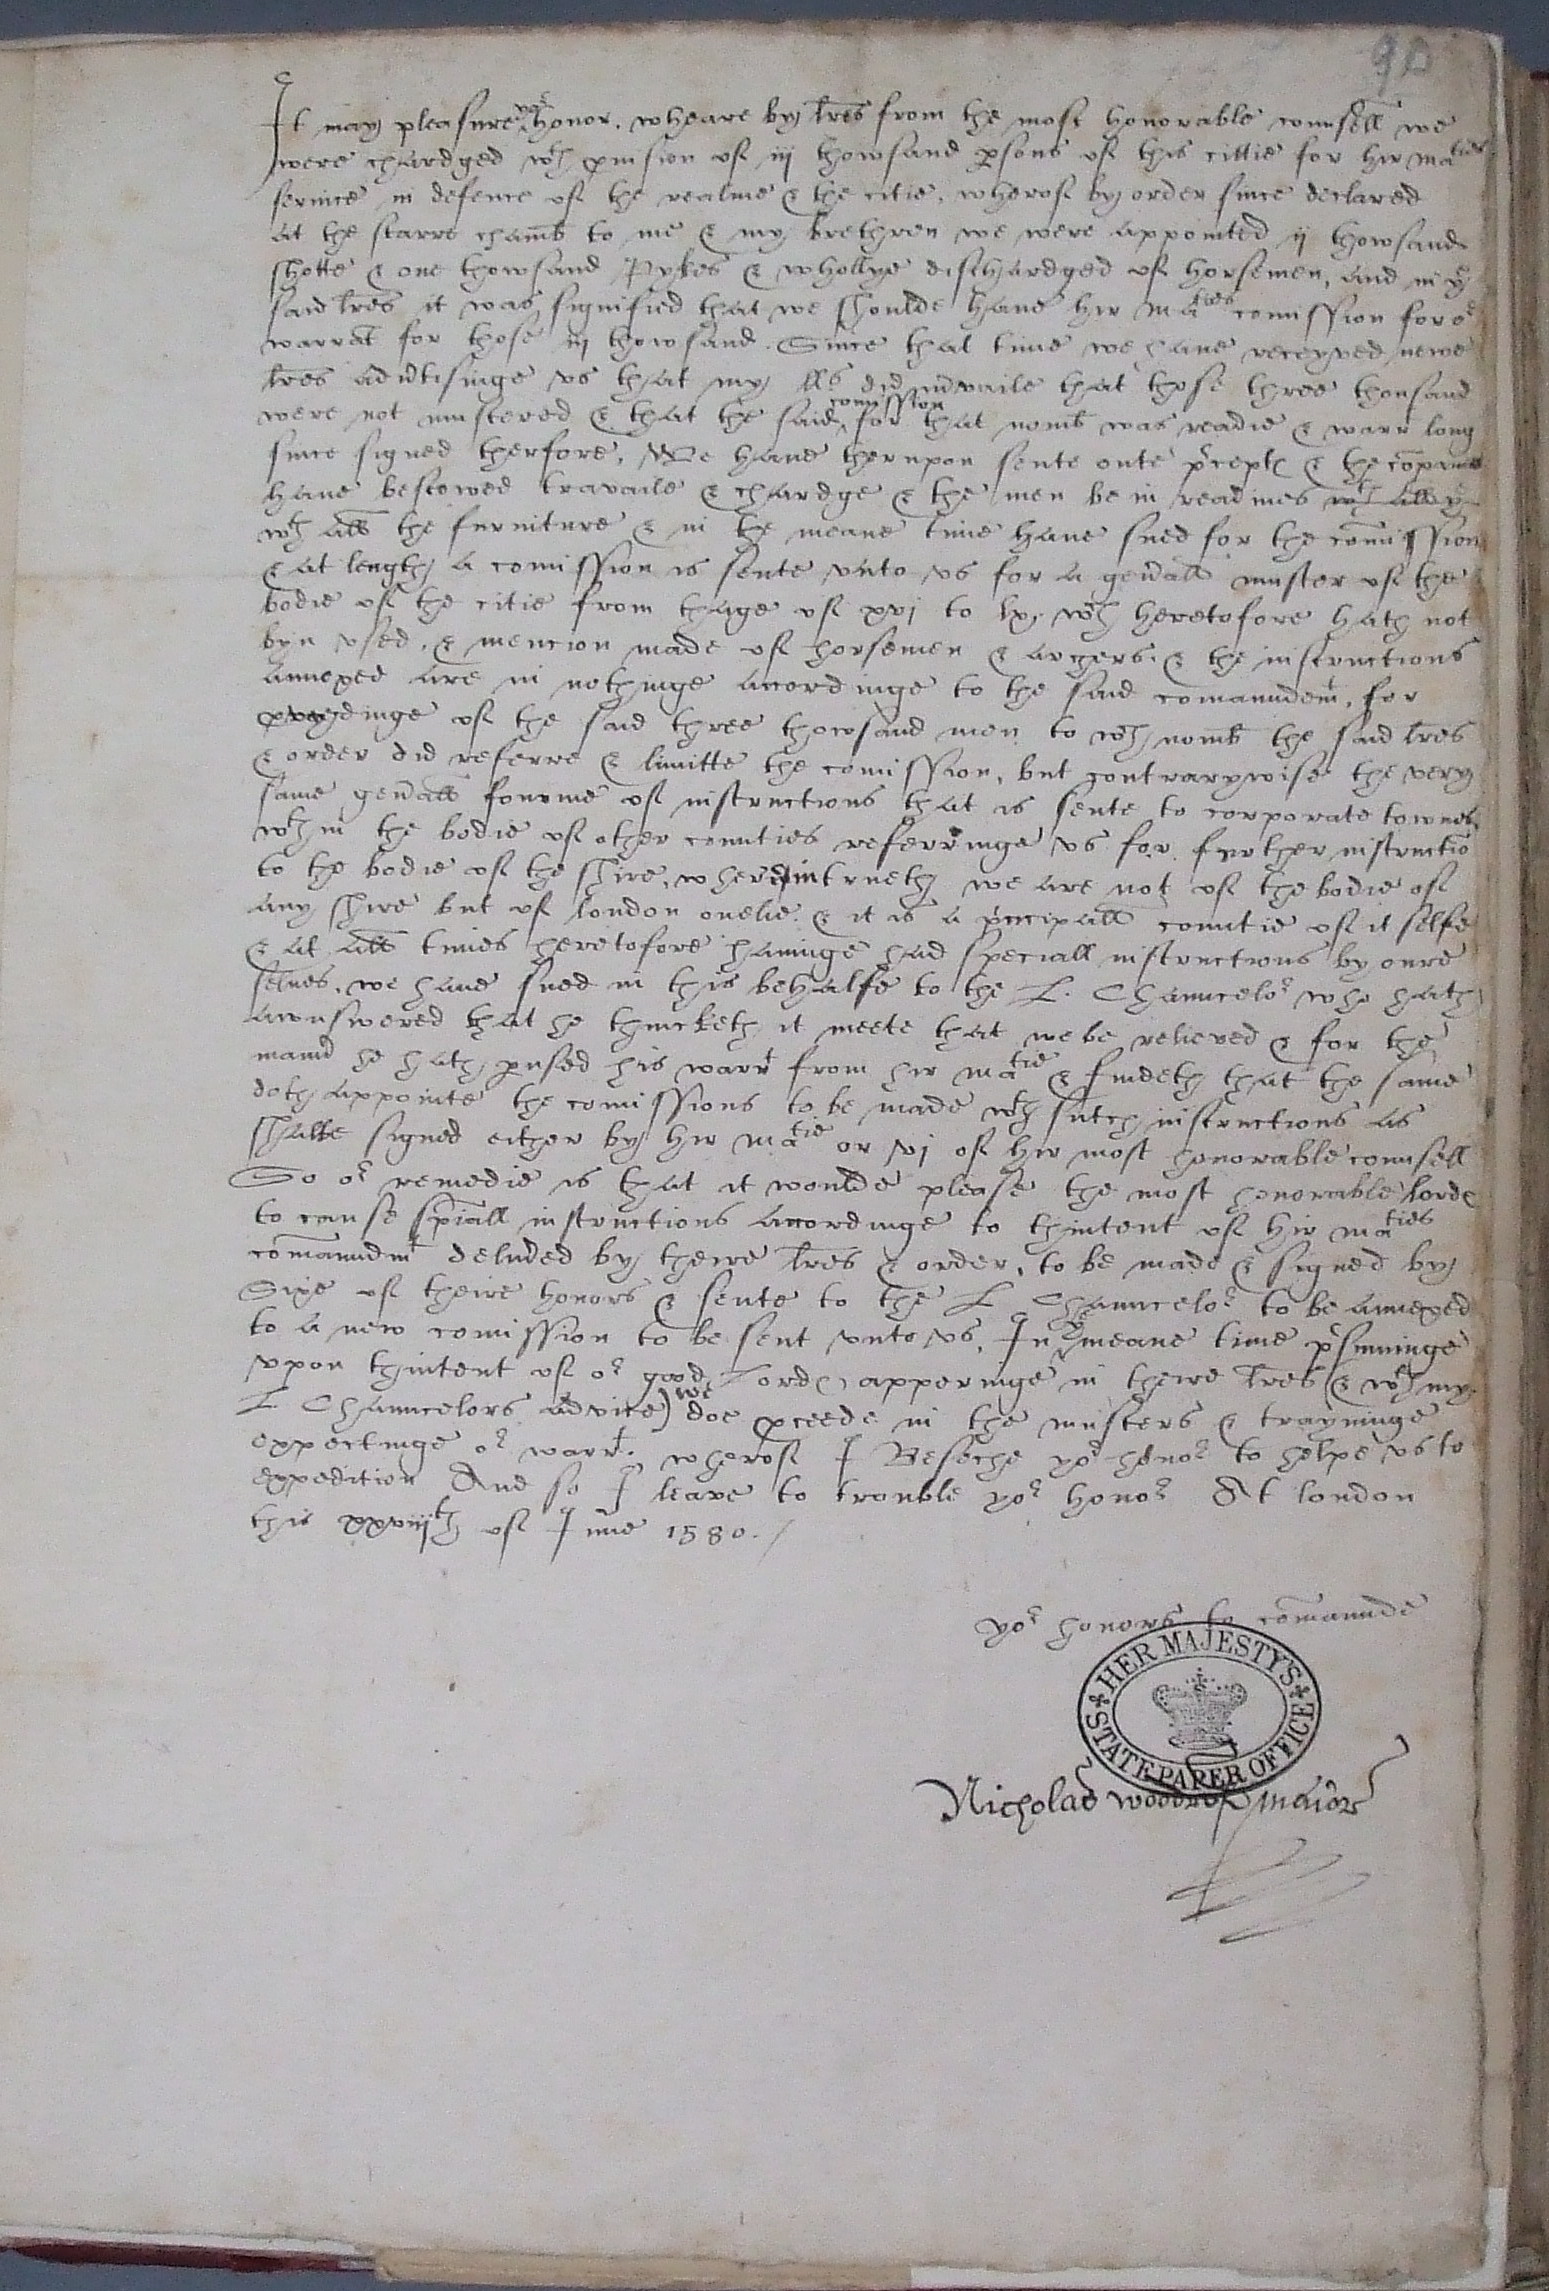 90
It may pleasure yor honor. wheare by lres from the most honorable counsell we
were chardged wth pvision of iij thowsand psons of this cittie for hir maties
service in defence of the realme & the citie, wherof by order since declared
at the starre chamb to me & my brethren we were appointed ij thowsand
shotte & one thowsand Pykes & whollye dischardged of horsemen, and in ye
said lres it was signified that we shoulde have hir maties comission for or
warrat for those iij thowsand. Since that time we have receyved newe
lres advtisinge us that my lls did mvaile that those three thousand
were not mustered & that the said comission for that nomb was readie & warr long
since signed therfore, We have therupon sente oute pcepts & the companies
have bestowed travaile & chardge & the men be in readines wth all ye
wth all the furniture & in the meane time have sued for the comission
& at length a comission is sente unto us for a genall muster of the
bodie of the citie from thage of xvj to lx, wch heretofore hath not
byn used, & mencion made of horsemen & archers & the instructions
annexed are in nothinge accordinge to the said comaundemt, for
pvydinge of the said three thowsand men to wch nomb the said lres
& order did referre & limitte the comission, but contrarywise the very
same genall fourme of instructions that is sente to corporate townes
wthin the bodie of other counties referringe us for further instructio
to the bodie of the shire, where in trueth we are not of the bodie of
any shire but of london onelie & it is a principall countie of it selfe
& at all times heretofore havinge had speciall instructions by oure
selves, we have sued in this behalfe to the L. Chauncelor who hath
awnswered that he thincketh it meete that we be relieved & for the
maner he hath pused his warrt from hir matie & findeth that the same
doth appointe the comissions to be made wth sutch instructions as
shalbe signed either by hir matie or vj of hir most honorable counsell
So or remedie is that it woulde please the most honorable lords
to cause spiall instructions accordinge to thintent of hir maties
comaundmt delived by theire lres & order, to be made & signed by
Sixe of theire honors & sente to the L Chauncelor to be annexed
to a new comission to be sent unto us. In ye meane time psuminge
upon thintent of or good Lords apperinge in theire lres (& wth my
L. Chauncelors advice) we doe pceede in the musters & trayninge
expectinge or warrt, wherof I Beseche yor honor to helpe us to
expedition And so I leave to trouble yor honor At london
this xxviijth of June 1580./
yor honors to comaunde
HER MAJESTY'S STATE PAPER OFFICE
Nicholas woodrof maior